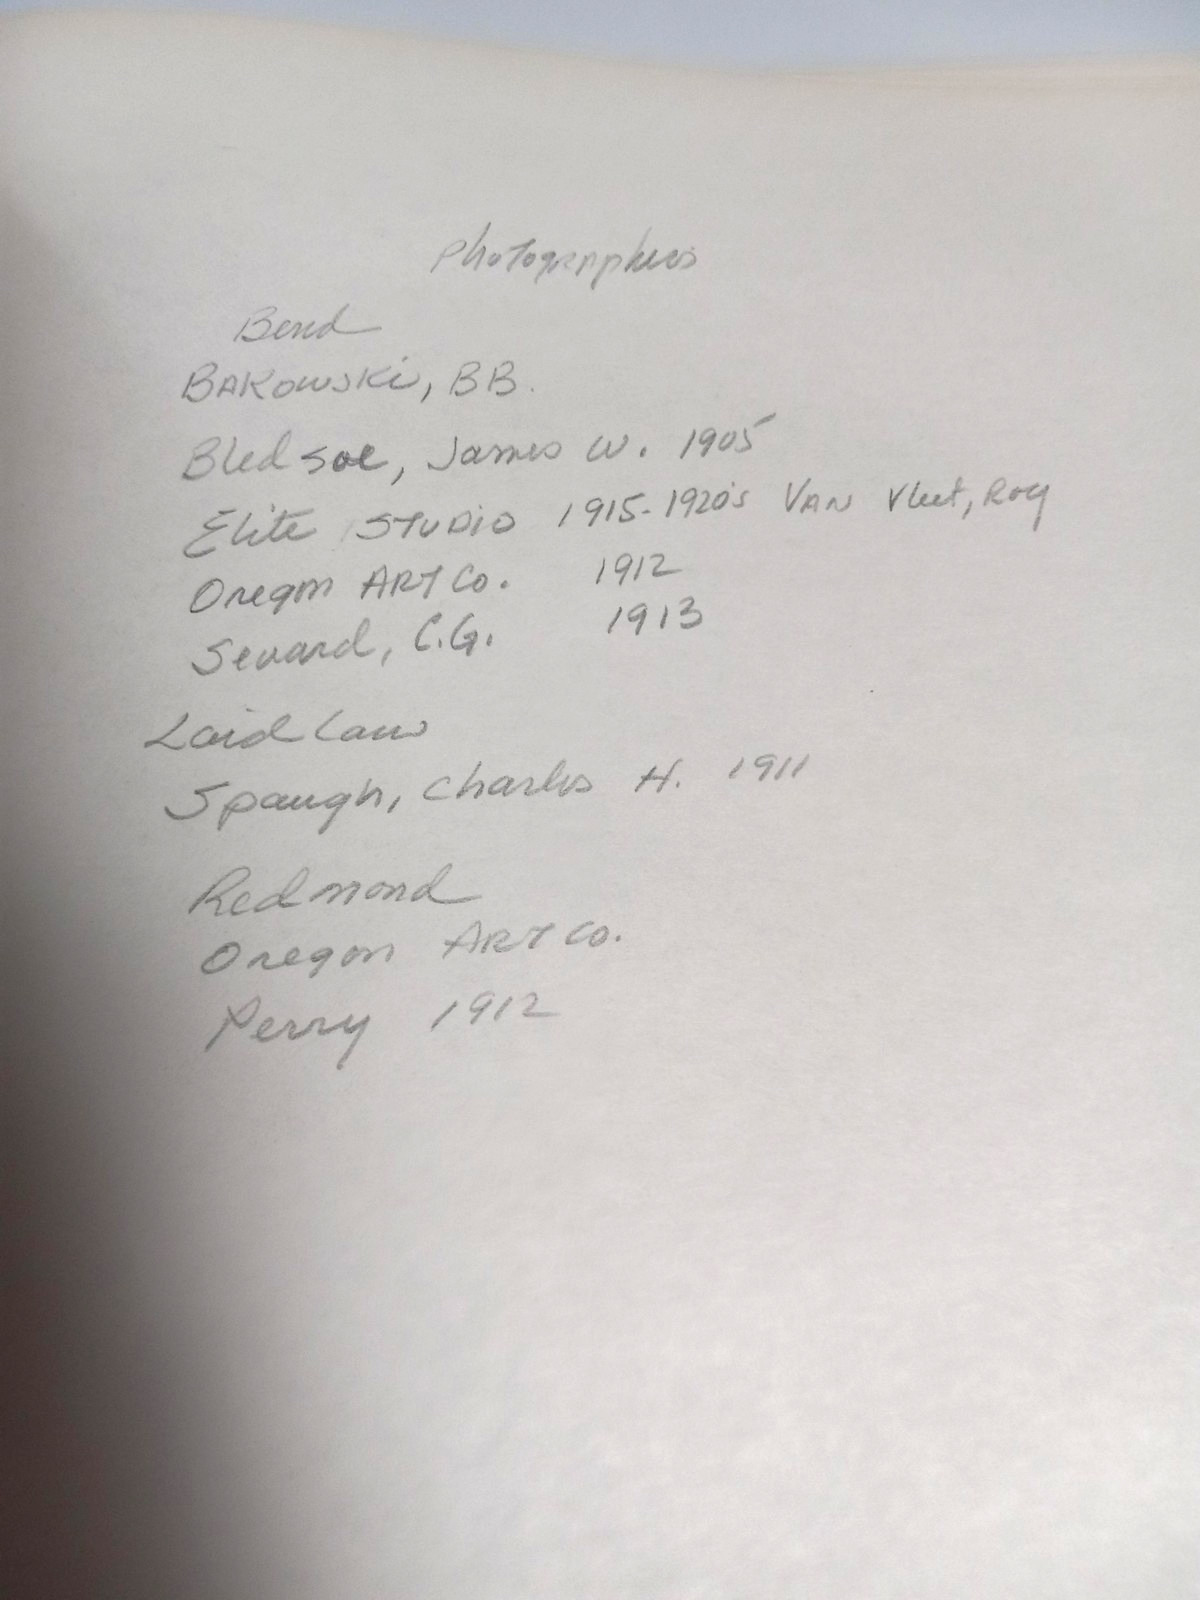 Photographers
Bend
BAKOWSKI, BB.
Bledsoe, James W. 1905
Elite STUDIO 1915-1920's VAN Vleet, Roy
Oregon ART Co. 1912
Sevard, C.G. 1913
Laidlaw
Spaugh, Charles H. 1911
Redmond
Oregon ART Co.
Perry 1912